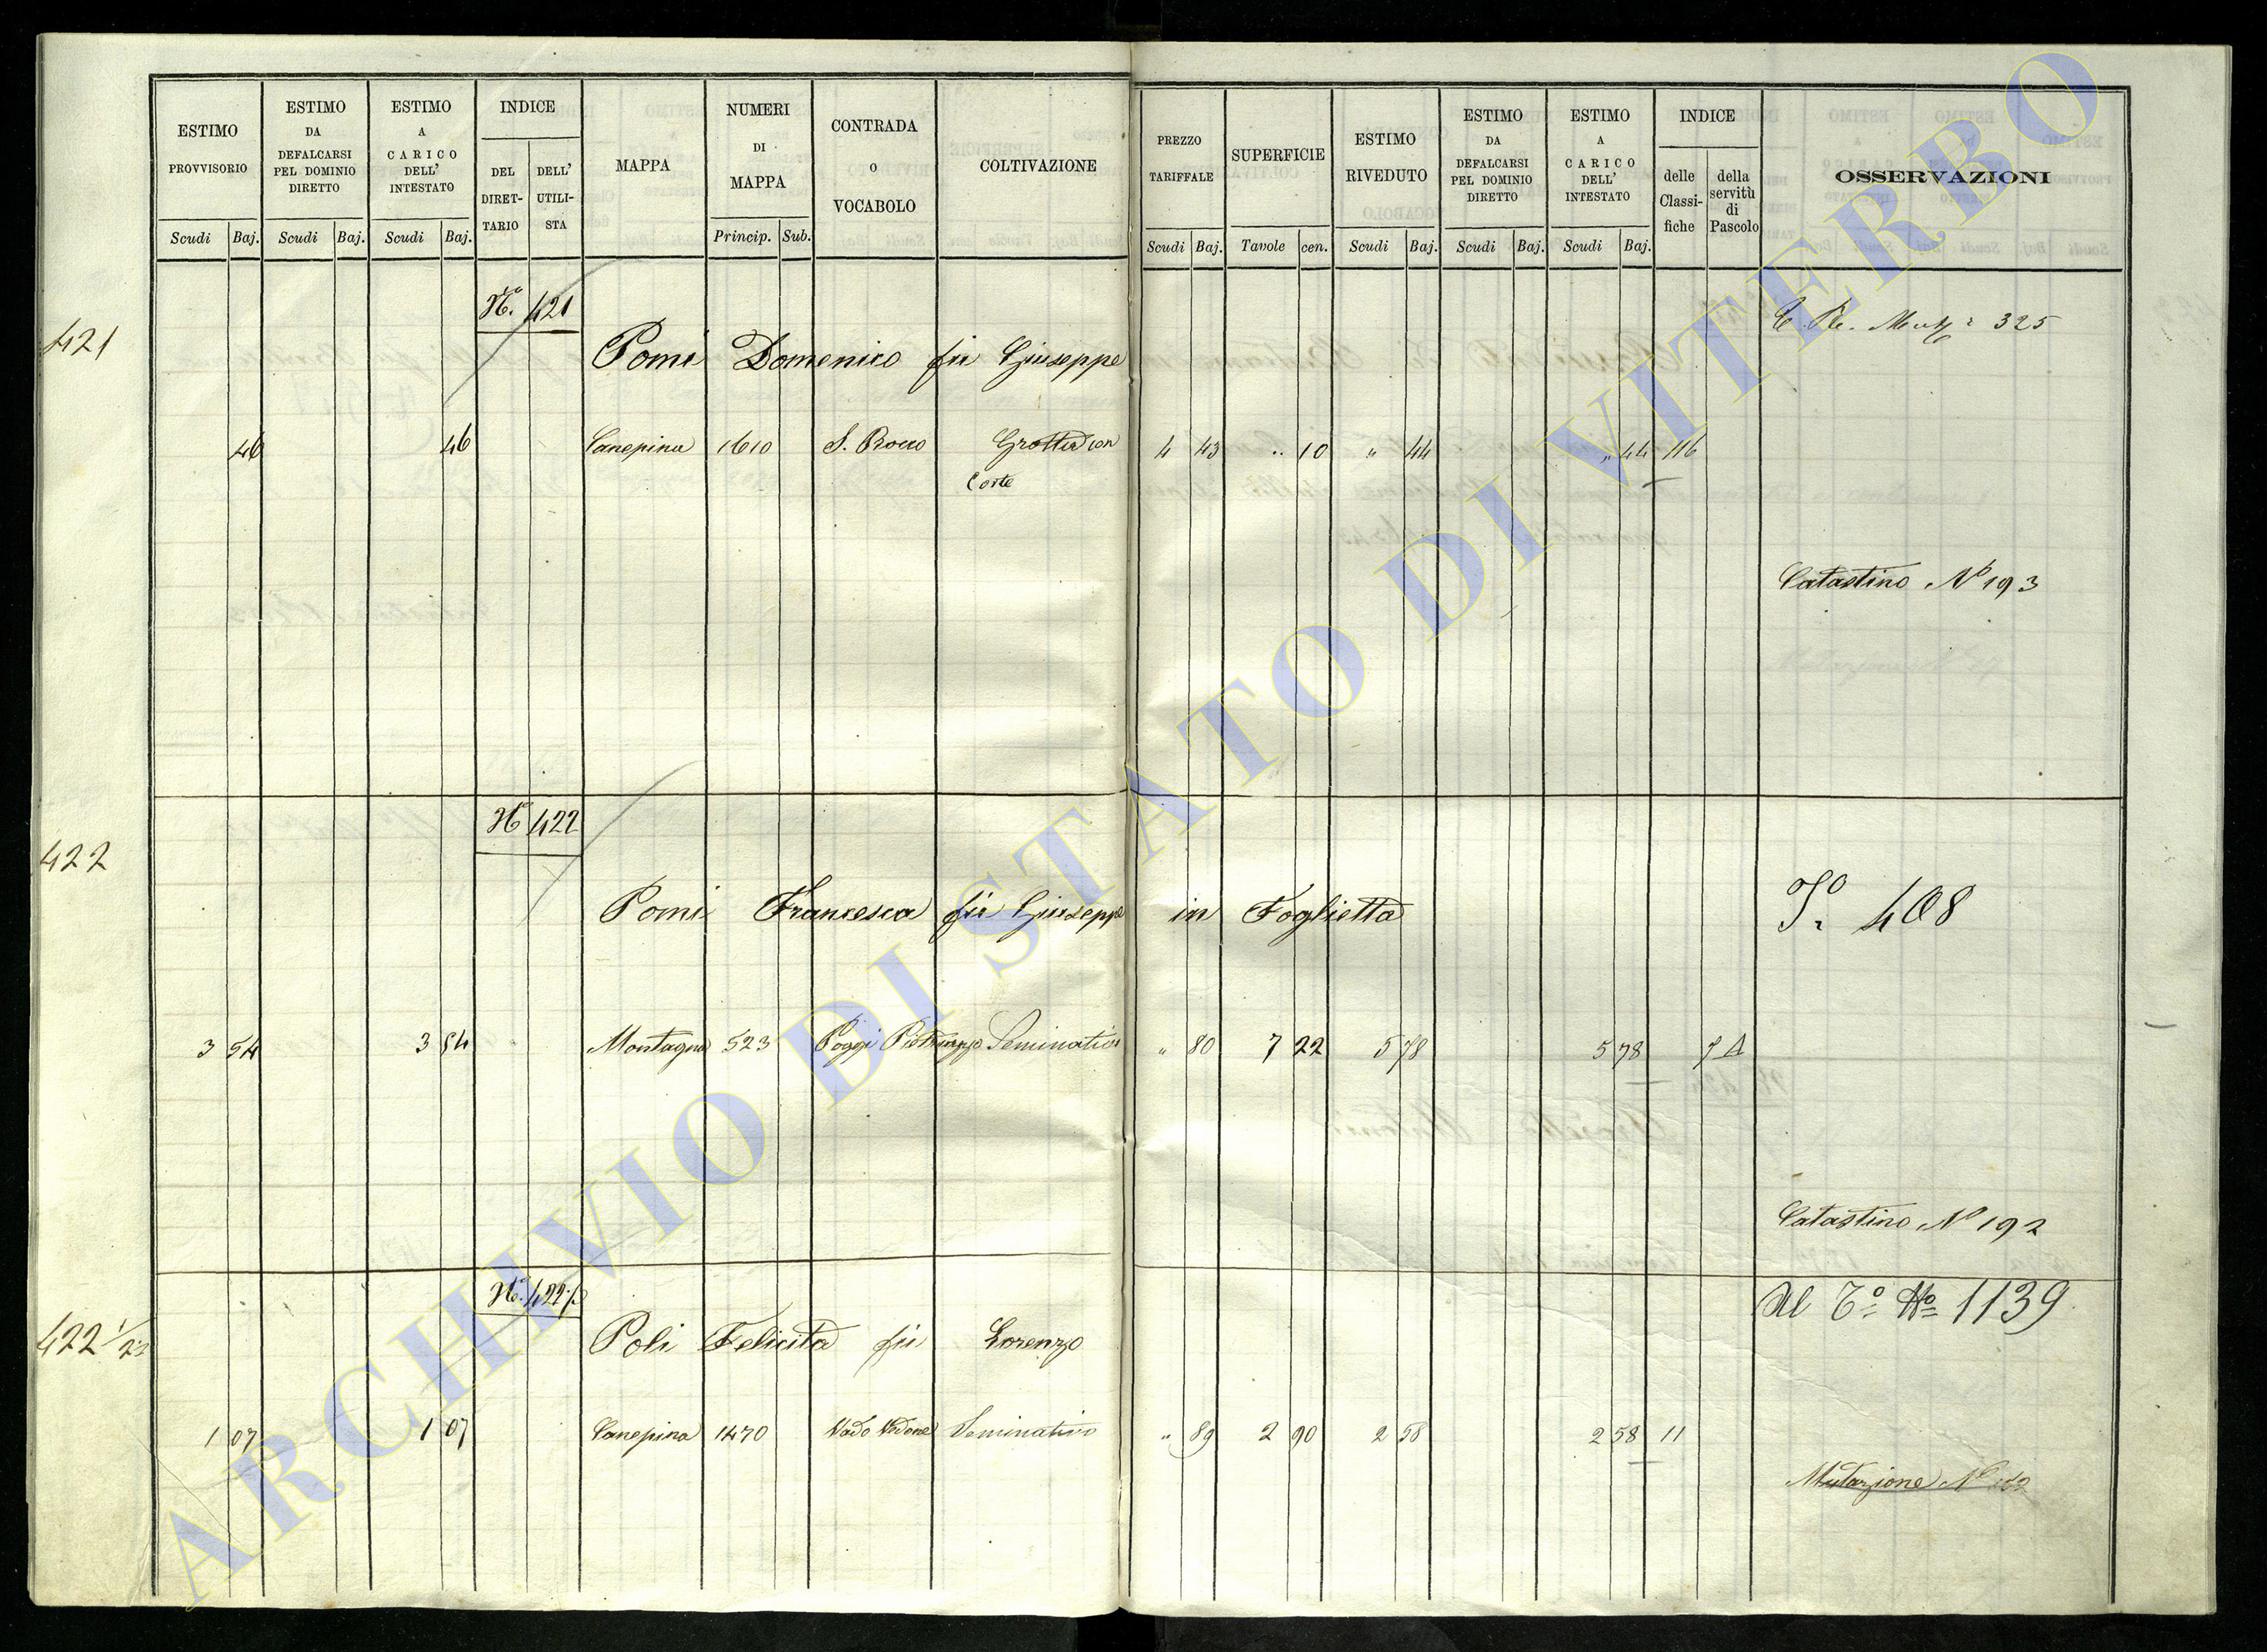 ESTIMO PROVVISORIO
ESTIMO DA DEFALCARSI PEL DOMINIO DIRETTO
ESTIMO A CARICO DELL' INTESTATO
INDICE
DEL DIRET-TARIO
DELL' UTILI-STA
MAPPA
NUMERI DI MAPPA
CONTRADA O VOCABOLO
COLTIVAZIONE
PREZZO TARIFFALE
SUPERFICIE
ESTIMO RIVEDUTO
ESTIMO DA DEFALCARSI PEL DOMINIO DIRETTO
ESTIMO A CARICO DELL' INTESTATO
INDICE
delle Classi-fiche
della servitù di Pascolo
OSSERVAZIONI
Scudi Baj. Scudi Baj. Scudi Baj. Princip. Sub. Scudi Baj. Tavole cen. Scudi Baj. Scudi Baj. Scudi Baj.
N.° 421
325
421
Pomi Domenico fu Giuseppe
46 46 Canepina 1610 S. Rocco Grotta con 4 43 .. 10 " 44 " 44 116
Corte
Catastino N° 193
N° 422
422
Pomi Francesca fu Giuseppe in Foglietta
408
3 54 3 54 Montagna 523 Poggi Seminativo " 80 7 22 5 78 5 78 7 A
Catastino N° 192
N.° 422 ½
Al N° 1139
422 ½
Poli Felicita fu Lorenzo
1 07 1 07 Canepina 1470 Vado Seminativo " 89 2 90 2 58 2 58 11
Mutazione N°
ARCHIVIO DI STATO DI VITERBO